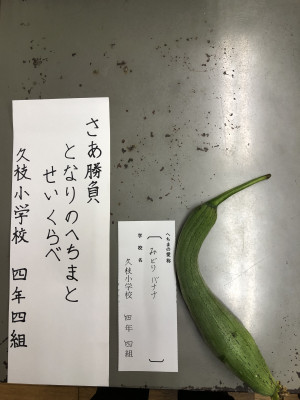 さあ勝負
となりのへちまと
せいくらべ
久枝小学校 四年四組
へちまの愛称
〔 みどりバナナ 〕
学校名
久枝小学校 四年四組